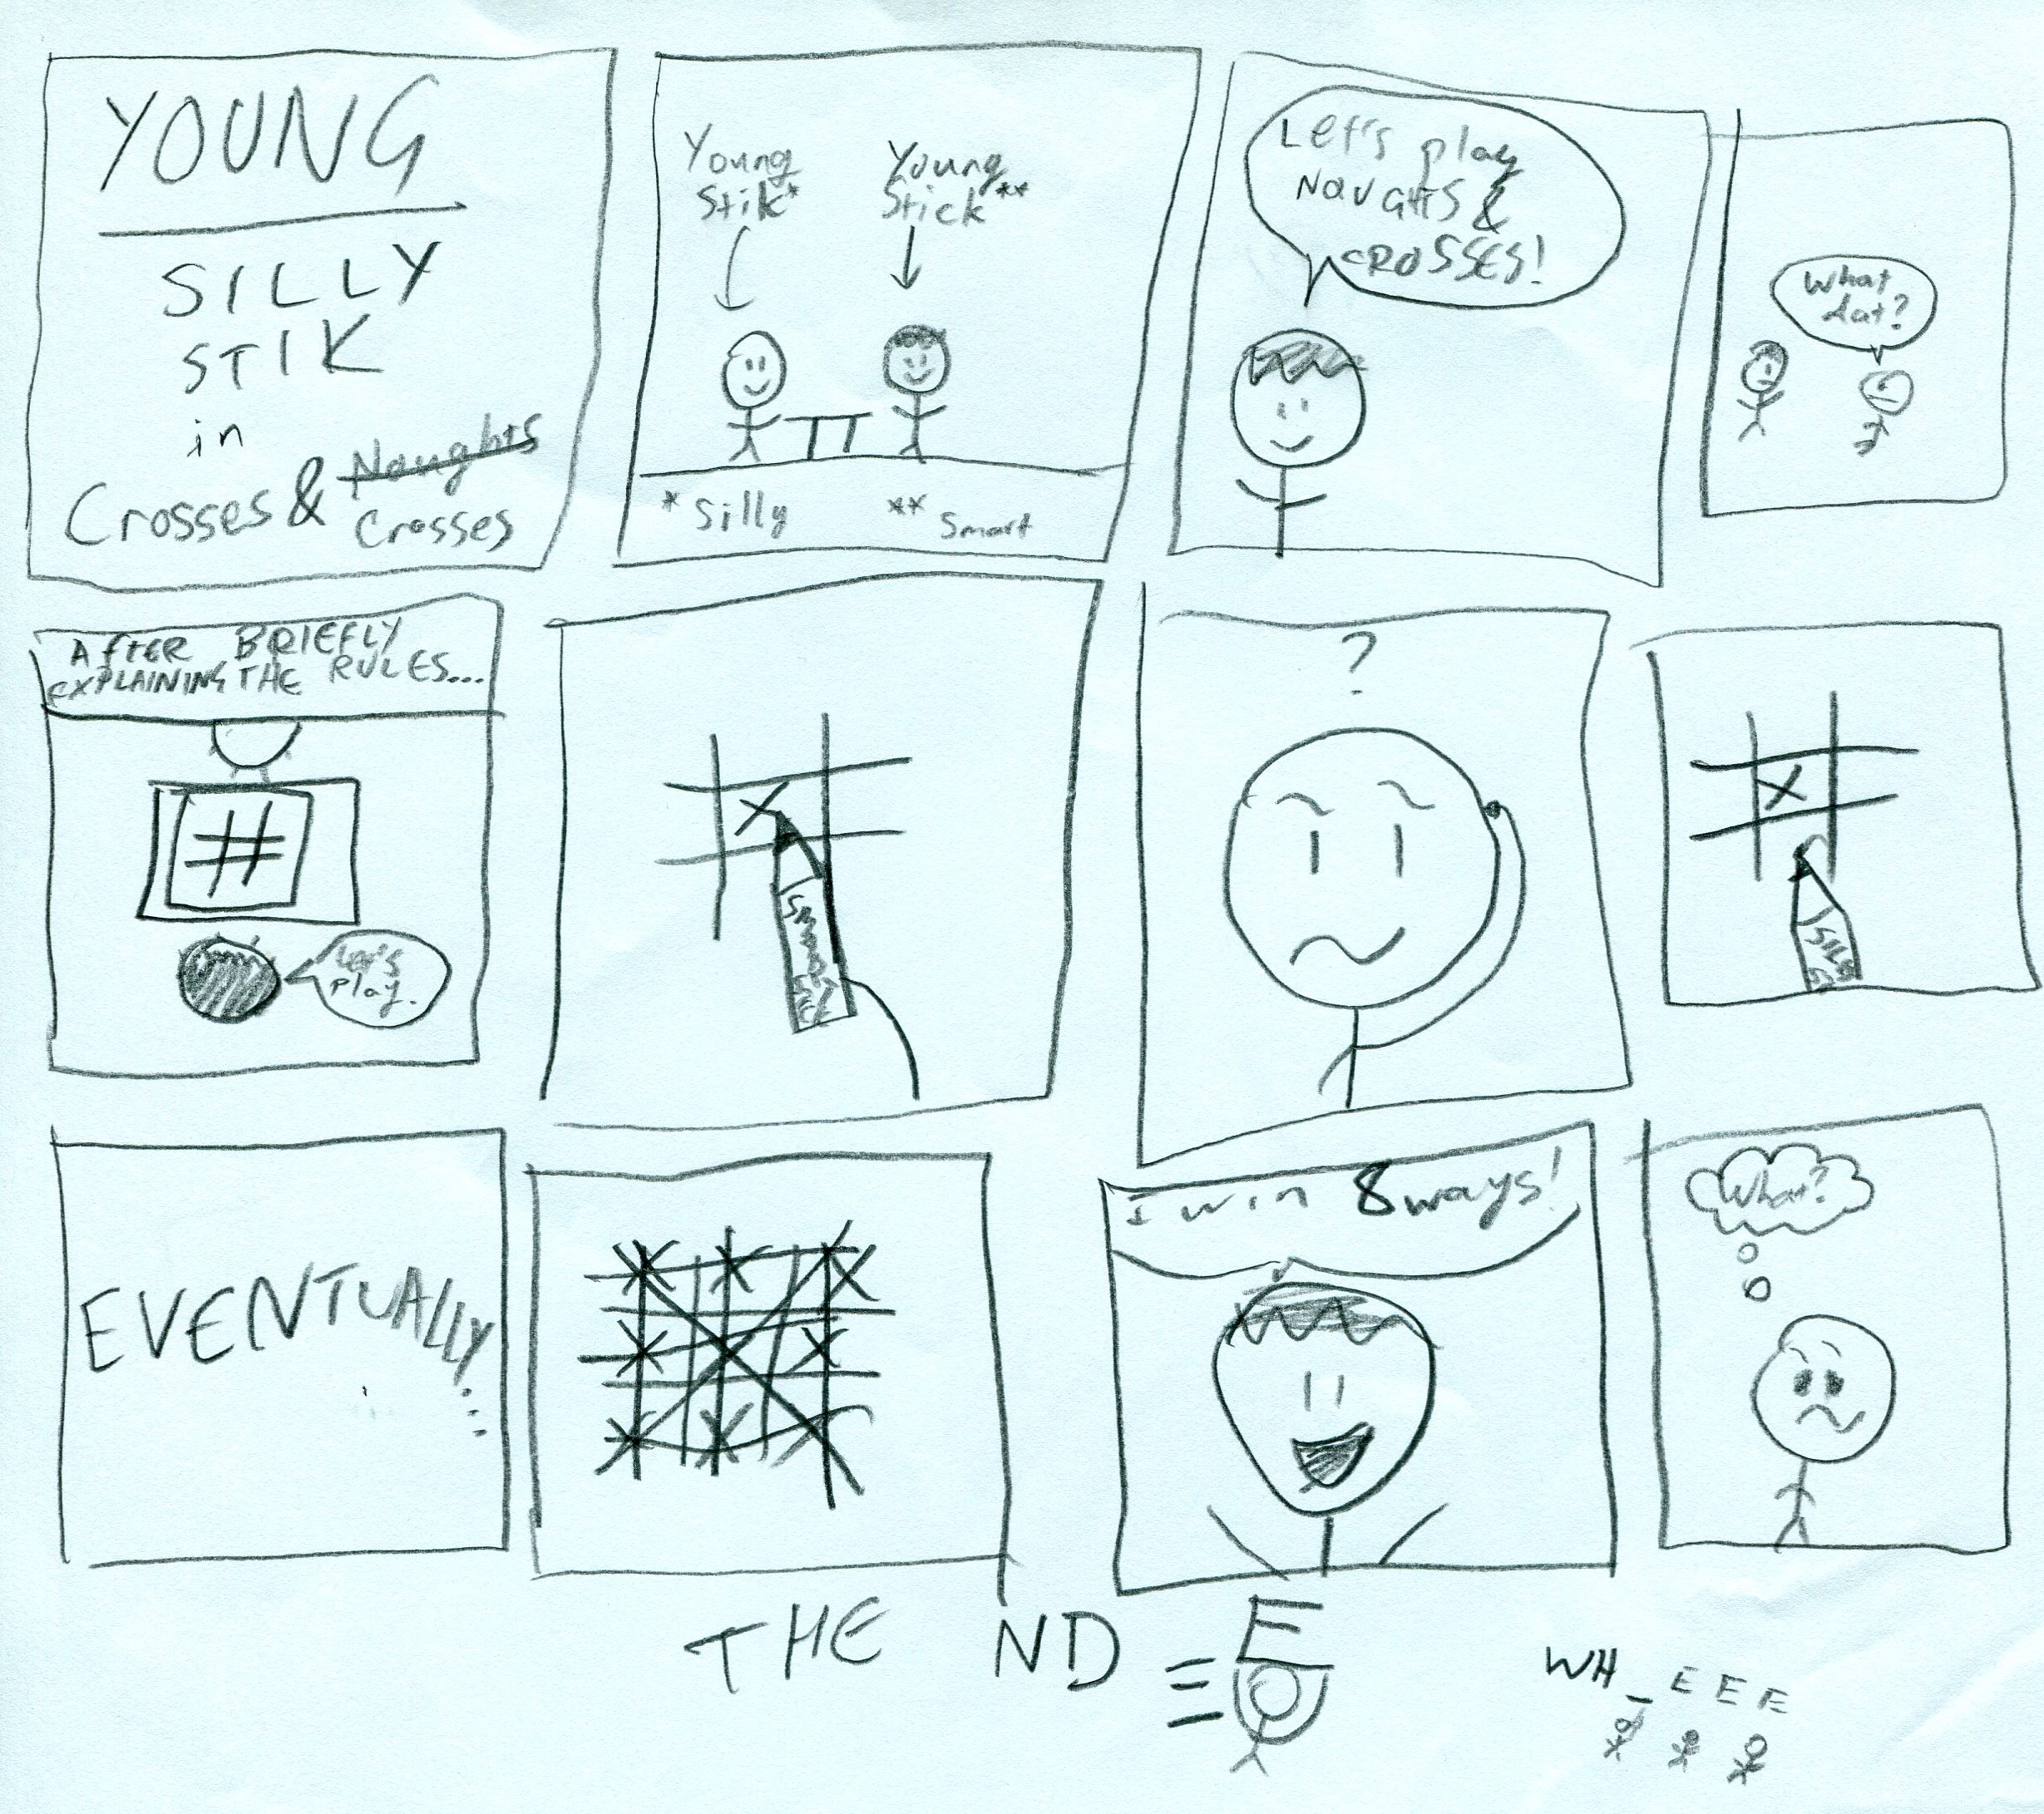 YOUNG
SILLY
STIK
in
Crosses & Noughts
Crosses
Young
Stik*
Young
Stick**
*Silly
**Smart
Let's play
NOUGHTS &
CROSSES!
What
dat?
AFTER BRIEFLY
EXPLAINING THE RULES...
Let's
play.
?
EVENTUALLY...
I win 8 ways!
What?
THE ND
E
WH_EEE